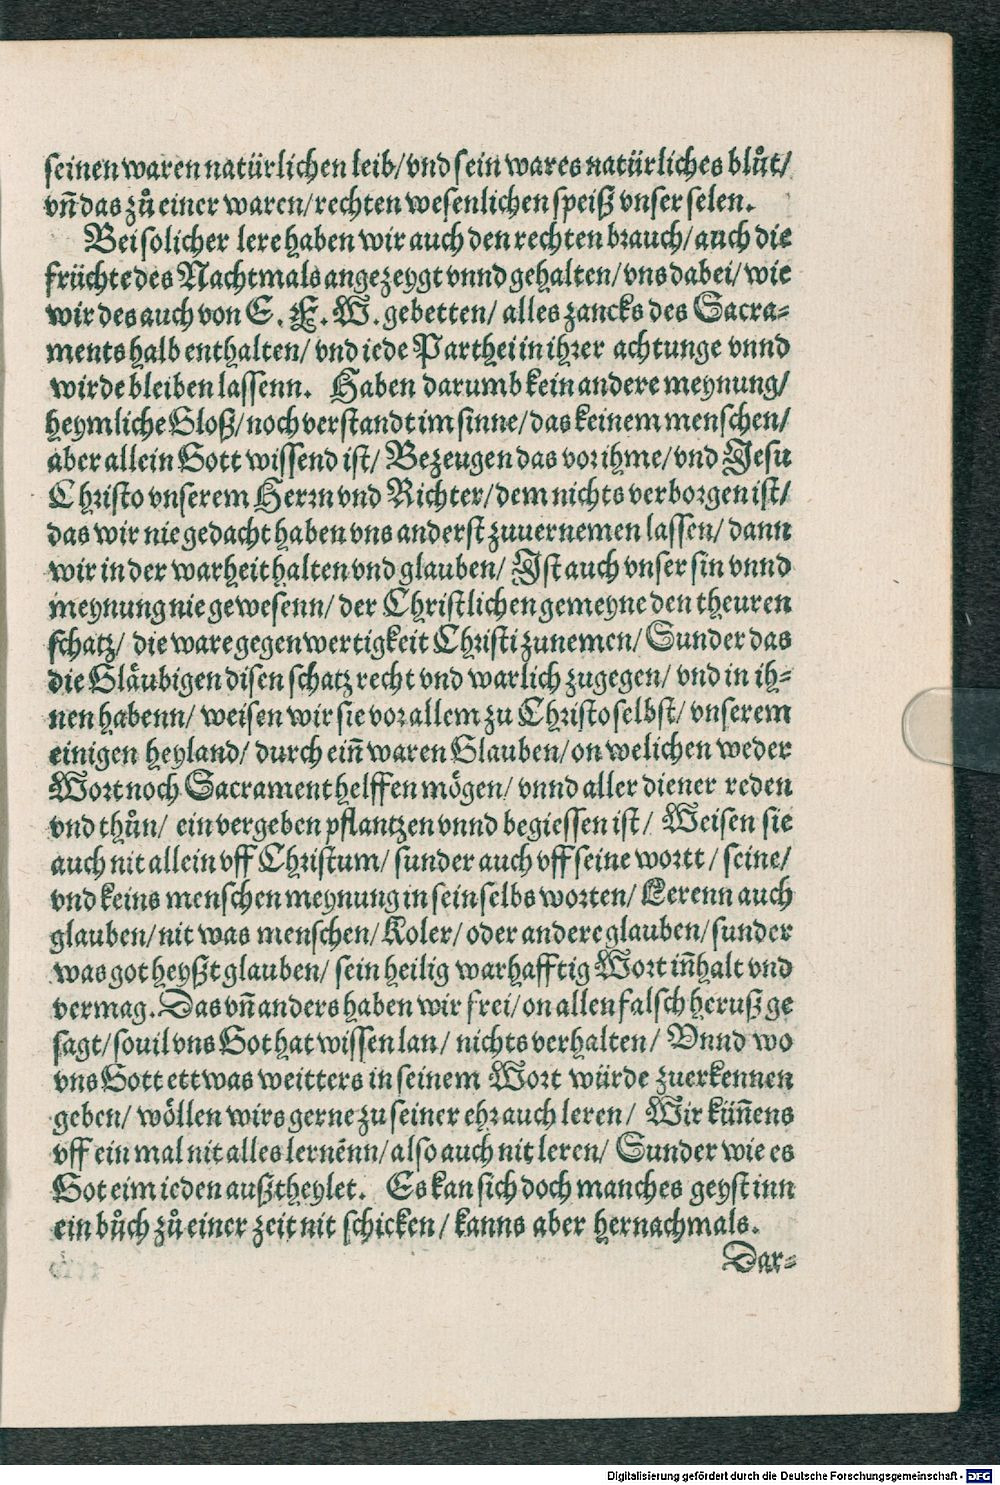 seinen waren natürlichen leib/ vnd sein wares natürliches blůt/
vn̄ das zů einer waren/ rechten wesenlichen speiß vnser selen.
Bei solicher lere haben wir auch den rechten brauch/ auch die
früchte des Nachtmals angezeygt vnnd gehalten/ vns dabei/ wie
wir des auch von E. F. W. gebetten/ alles zancks des Sacra⸗
ments halb enthalten/ vnd iede Parthei in ihrer achtunge vnnd
wirde bleiben lassenn. Haben darumb kein andere meynung/
heymliche Gloß/ noch verstandt im sinne/ das keinem menschen/
aber allein Gott wissend ist/ Bezeugen das vor ihme/ vnd Jesu
Christo vnserem Herrn vnd Richter/ dem nichts verborgen ist/
das wir nie gedacht haben vns anderst zuuernemen lassen/ dann
wir in der warheit halten vnd glauben/ Ist auch vnser sin vnnd
meynung nie gewesenn/ der Christlichen gemeyne den theuren
schatz/ die ware gegenwertigkeit Christi zunemen/ Sunder das
die Gläubigen disen schatz recht vnd warlich zugegen/ vnd in ih⸗
nen habenn/ weisen wir sie vor allem zu Christo selbst/ vnserem
einigen heyland/ durch ein̄ waren Glauben/ on welichen weder
Wort noch Sacrament helffen mögen/ vnnd aller diener reden
vnd thůn/ ein vergeben pflantzen vnnd begiessen ist/ Weisen sie
auch nit allein vff Christum/ sunder auch vff seine wortt/ seine/
vnd keins menschen meynung in sein selbs worten/ Lerenn auch
glauben/ nit was menschen/ Koler/ oder andere glauben/ sunder
was got heyßt glauben/ sein heilig warhafftig Wort in̄halt vnd
vermag. Das vn̄ anders haben wir frei/ on allen falsch heruß ge
sagt/ souil vns Got hat wissen lan/ nichts verhalten/ Vnnd wo
vns Gott ettwas weitters in seinem Wort würde zuerkennen
geben/ wöllen wirs gerne zu seiner ehr auch leren/ Wir kün̄ens
vff ein mal nit alles lernēnn/ also auch nit leren/ Sunder wie es
Got eim ieden außtheylet. Es kan sich doch manches geyst inn
ein bůch zů einer zeit nit schicken/ kanns aber hernachmals.
Dar⸗
Digitalisierung gefördert durch die Deutsche Forschungsgemeinschaft - DFG